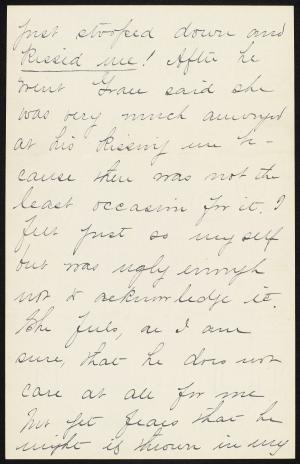 just stooped down and
kissed me! After he
went Grace said she
was very much annoyed
at his kissing me be-
cause there was not the
least occasion for it. I
felt just so myself
but was ugly enough
not to acknowledge it.
She feels, as I am
sure, that he does not
care at all for me
but yet fears that he
might is thrown in my